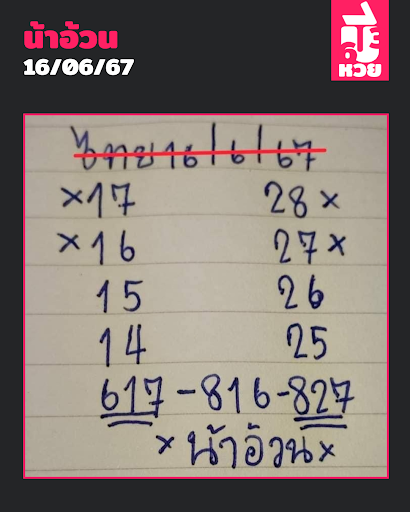 น้าอ้วน
16/06/67
ปู๊ะ
หวย
ไทย 16/6/67
×17 28×
×16 27×
15 26
14 25
617-816-827
× น้าอ้วน ×